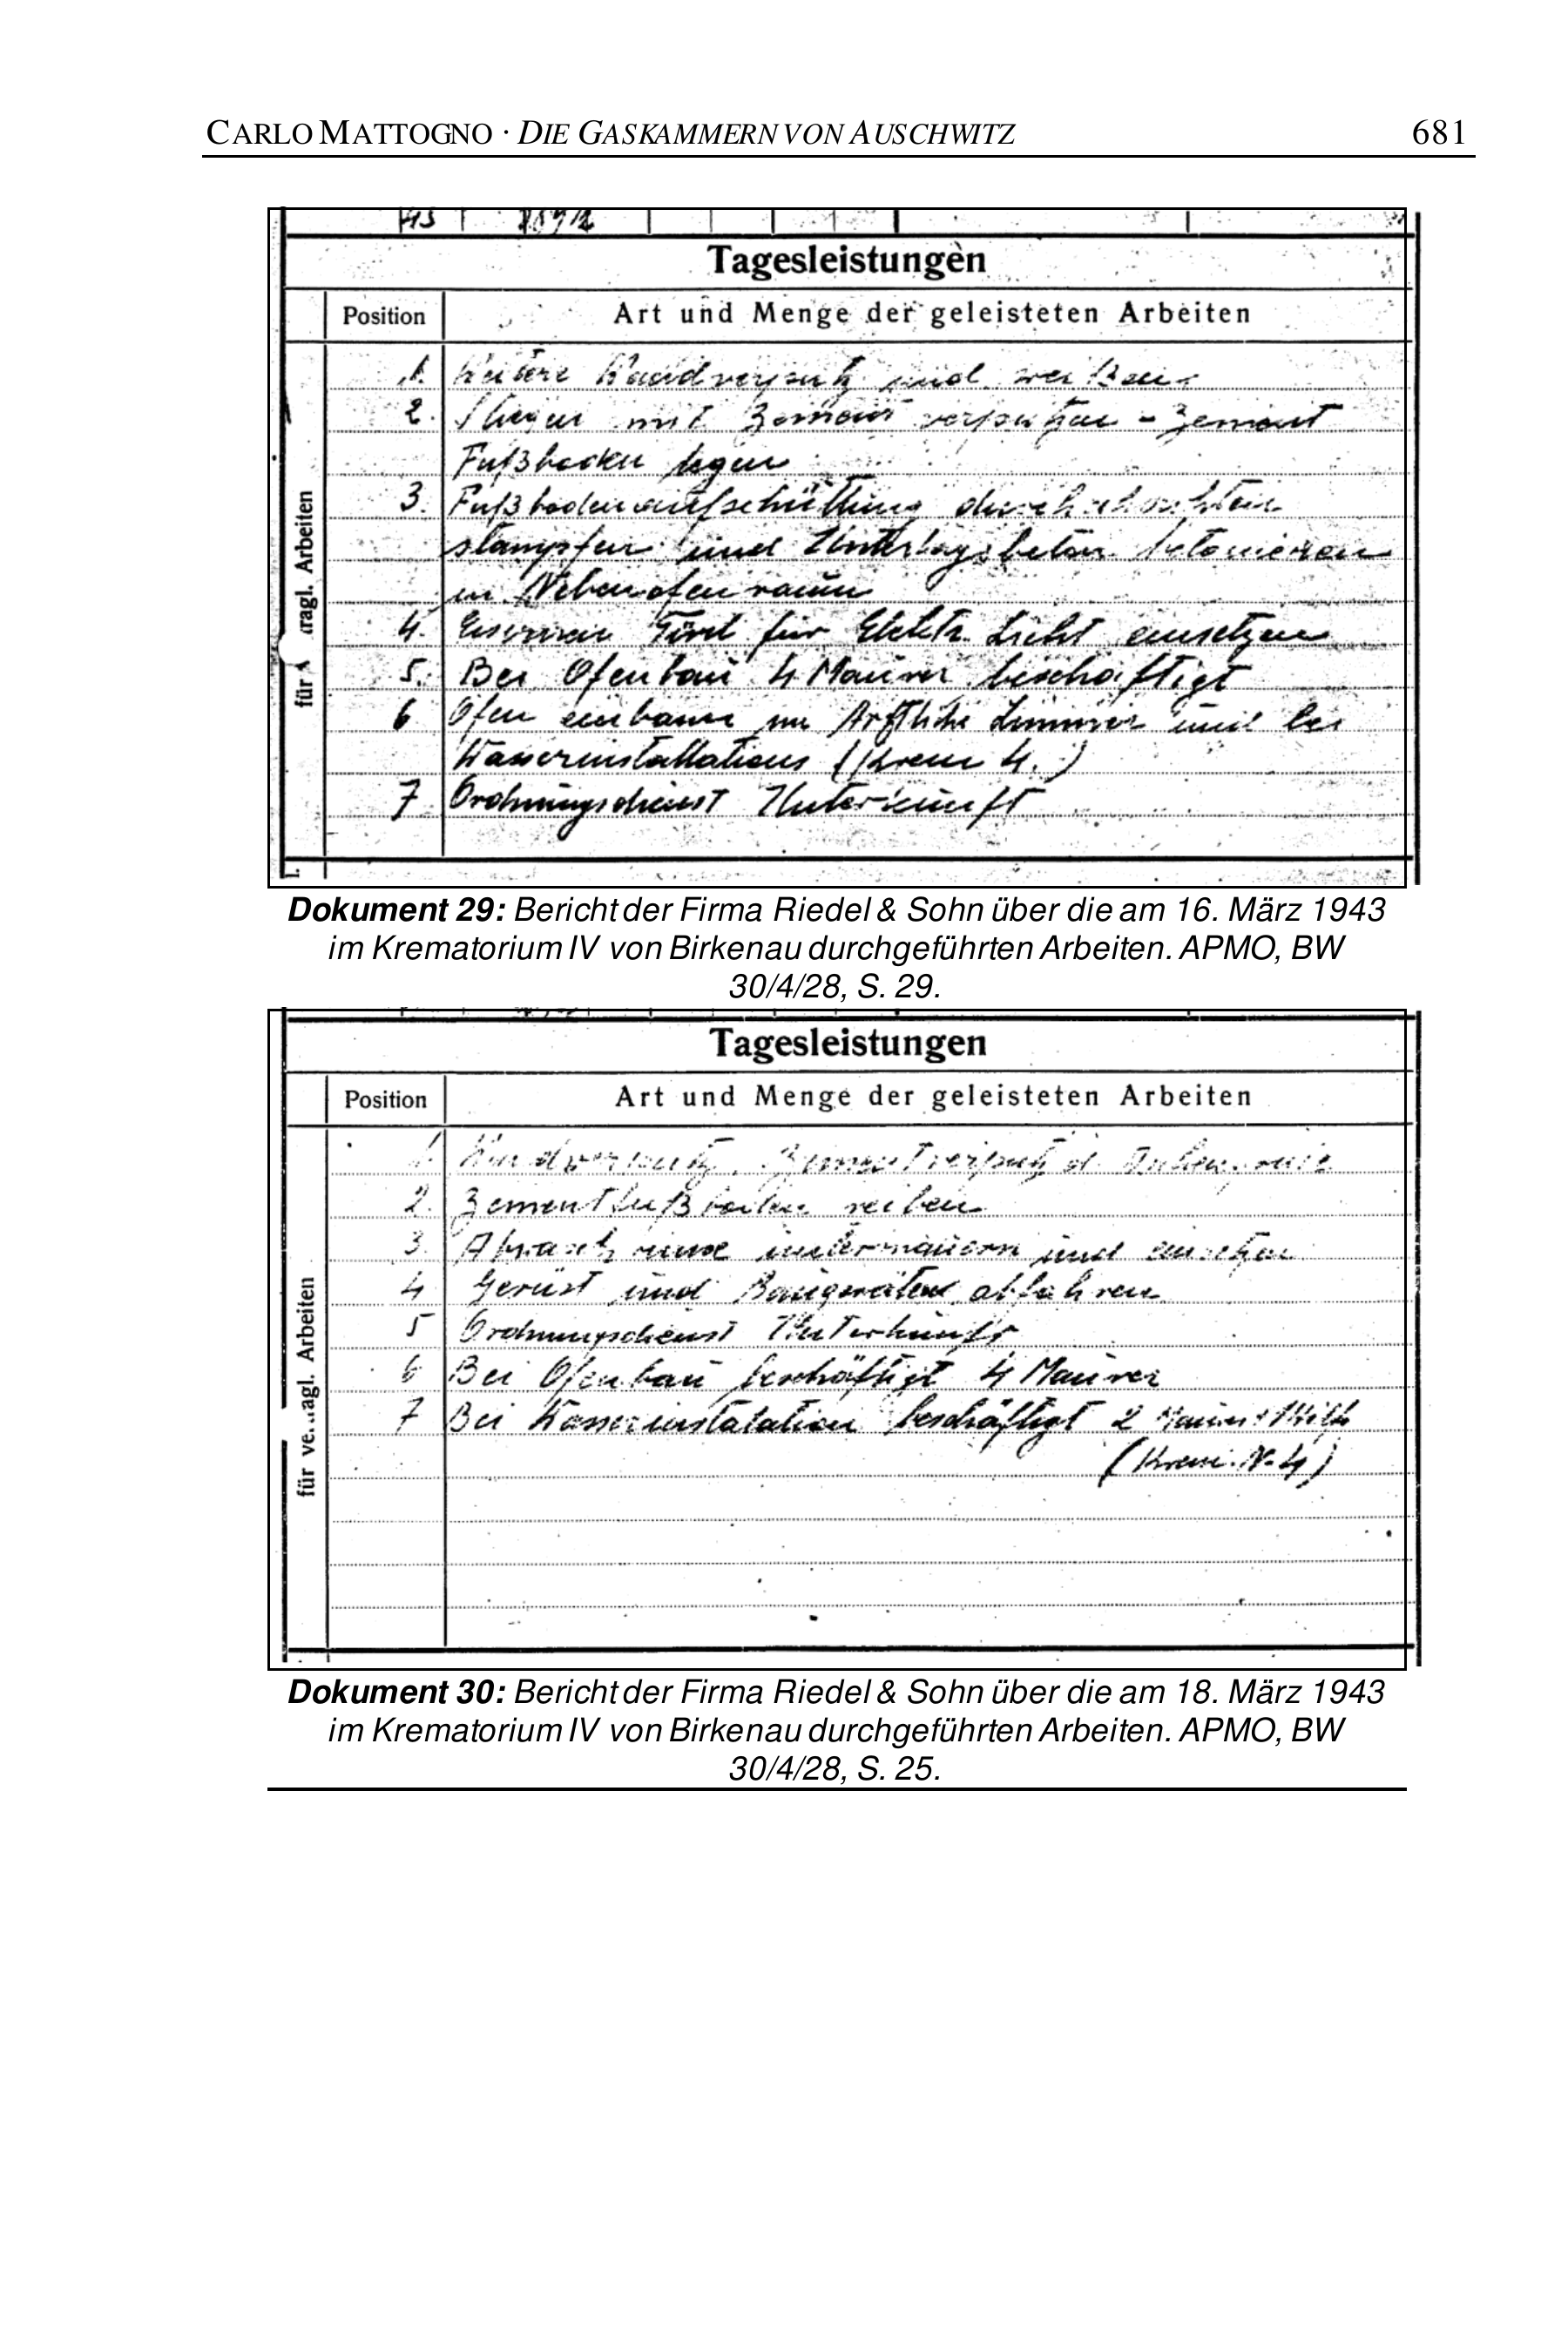 CARLO MATTOGNO · DIE GASKAMMERN VON AUSCHWITZ 681
Tagesleistungen
Position Art und Menge der geleisteten Arbeiten
für Arbeiten
1. und
2. mit verputzen - Zement
Fußboden legen
3. Fußbodenaufschüttung
stampfen und Unterlagsbeton betonieren
im Nebenofenraum
4. Türel für Elektr. Licht einsetzen
5. Bei Ofenbau 4 Maurer beschäftigt
6 Ofen einbauen im Zimmer und bei
Wasserinstallations (Krem 4.)
7 Ordnungsdienst Unterkunft
Dokument 29: Bericht der Firma Riedel & Sohn über die am 16. März 1943
im Krematorium IV von Birkenau durchgeführten Arbeiten. APMO, BW
30/4/28, S. 29.
Tagesleistungen
Position Art und Menge der geleisteten Arbeiten
für Arbeiten
1. Zementverputz
2. Zementfußboden reiben
3. untermauern und einsetzen
4 Gerüst und abfahren
5 Ordnungsdienst Unterkunft
6 Bei Ofenbau beschäftigt 4 Maurer
7 Bei Wasserinstalation beschäftigt 2
(Krem. N. 4)
Dokument 30: Bericht der Firma Riedel & Sohn über die am 18. März 1943
im Krematorium IV von Birkenau durchgeführten Arbeiten. APMO, BW
30/4/28, S. 25.